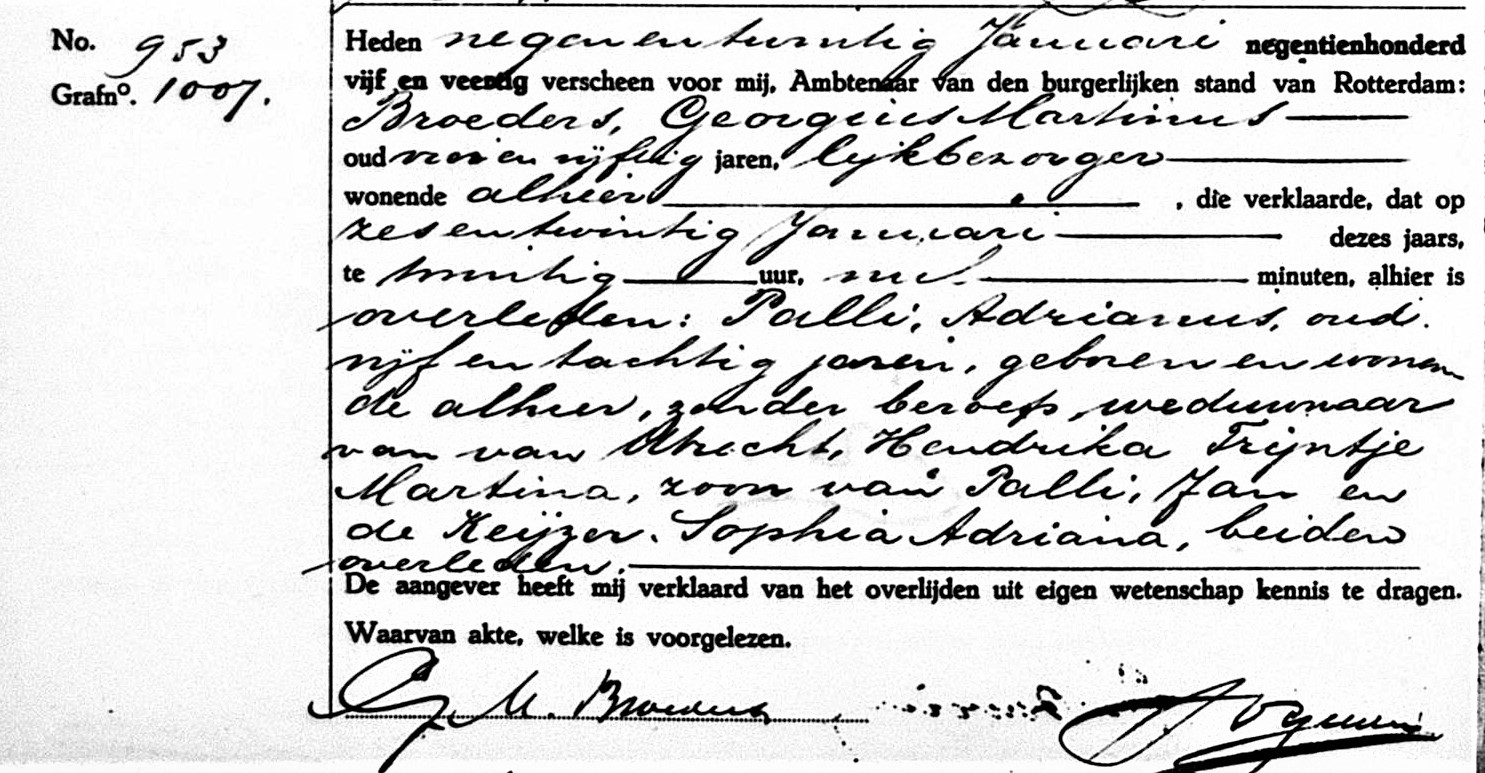 No. 953
Grafno. 1007.
Heden negenentwintig Januari negentienhonderd
vijf en veertig verscheen voor mij, Ambtenaar van den burgerlijken stand van Rotterdam:
Broeders, Georgius Martinus
oud vijftig jaren, lijkbezorger
wonende alhier , die verklaarde, dat op
zesentwintig Januari dezes jaars,
te twintig uur, nul minuten, alhier is
overleden: Palli, Adrianus, oud
vijfentachtig jaren, geboren en wonen
de alhier, zonder beroep, weduwnaar
van van Utrecht, Hendrika Trijntje
Martina, zoon van Palli, Jan en
de Keijzer, Sophia Adriana, beiden
overleden.
De aangever heeft mij verklaard van het overlijden uit eigen wetenschap kennis te dragen.
Waarvan akte, welke is voorgelezen.
G. M. Broeders